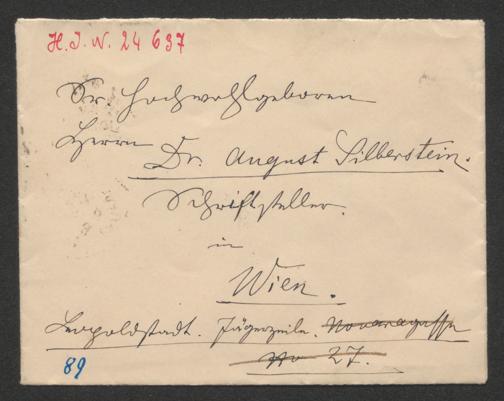 H. I. N. 24 637
Sr. Hochwohlgeboren
Herrn Dr. August Silberstein.
Schriftsteller.
in
Wien.
Leopoldstadt. Jägerzeile. Novaragasse
No 27.
89